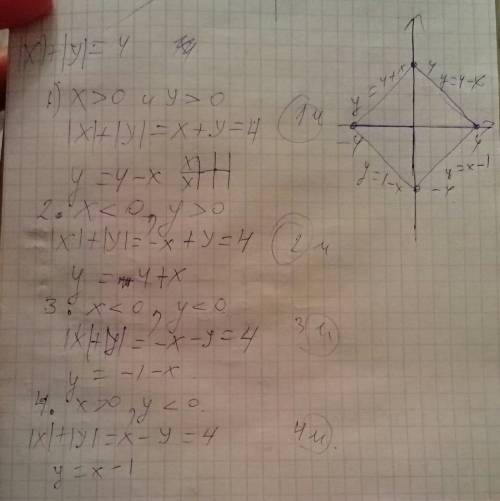 |x|+|y|=4
1) x>0 и y>0
1 ч
|x|+|y|=x+y=4
y=4-x
2. x<0, y>0
|x|+|y|=-x+y=4
2 ч
y=4+x
3. x<0, y<0
|x|+|y|=-x-y=4
3 ч
y=-1-x
4. x>0, y<0.
|x|+|y|=x-y=4
4 ч.
y=x-1
4
y=4+x
y=4-x
-4
4
y=1-x
y=x-1
-4